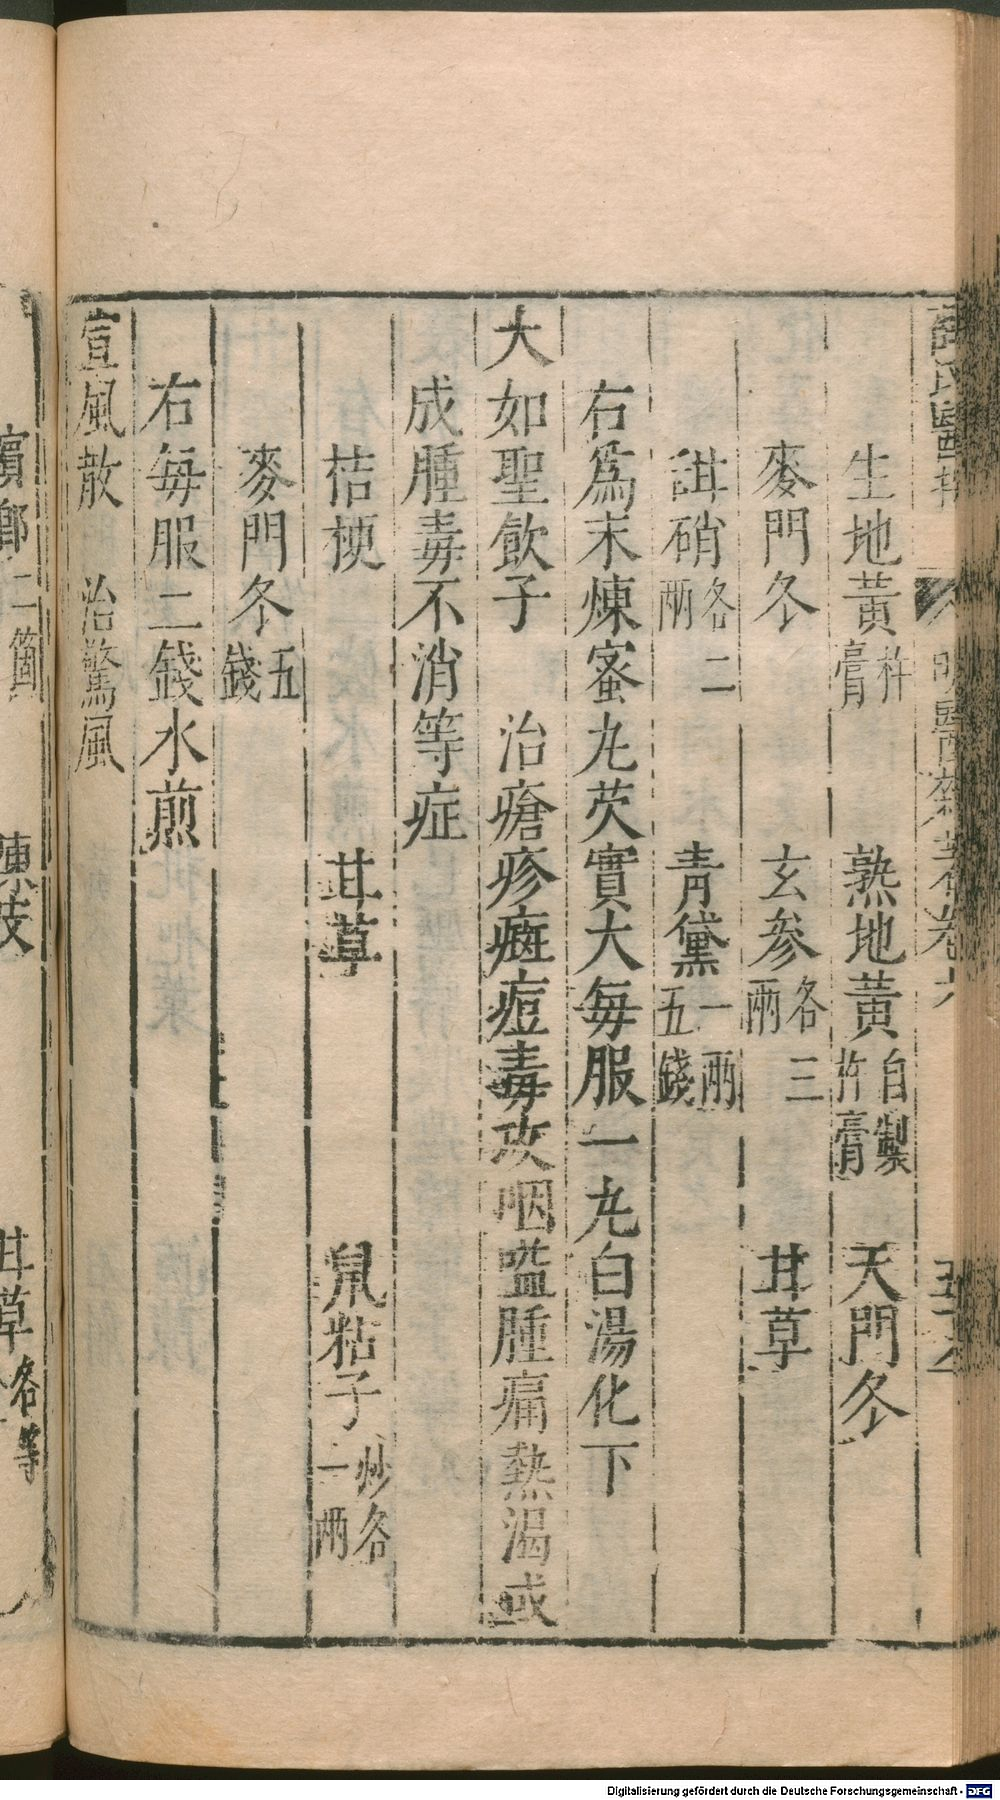 薛氏醫按 明醫雜著卷六 五十六
生地黃杵膏 熟地黃自製杵膏 天門冬
麥門冬 玄參各三兩 甘草
甜硝各二兩 青黛一兩五錢
右爲末煉蜜丸芡實大每服一丸白湯化下
大如聖飲子 治瘡疹斑痘毒攻咽嗌腫痛熱渴或
成腫毒不消等症
桔梗 甘草 鼠粘子炒各一兩
麥門冬五錢
右每服二錢水煎
宣風散 治驚風
檳榔二箇 陳皮 甘草各等
Digitalisierung gefördert durch die Deutsche Forschungsgemeinschaft - DFG